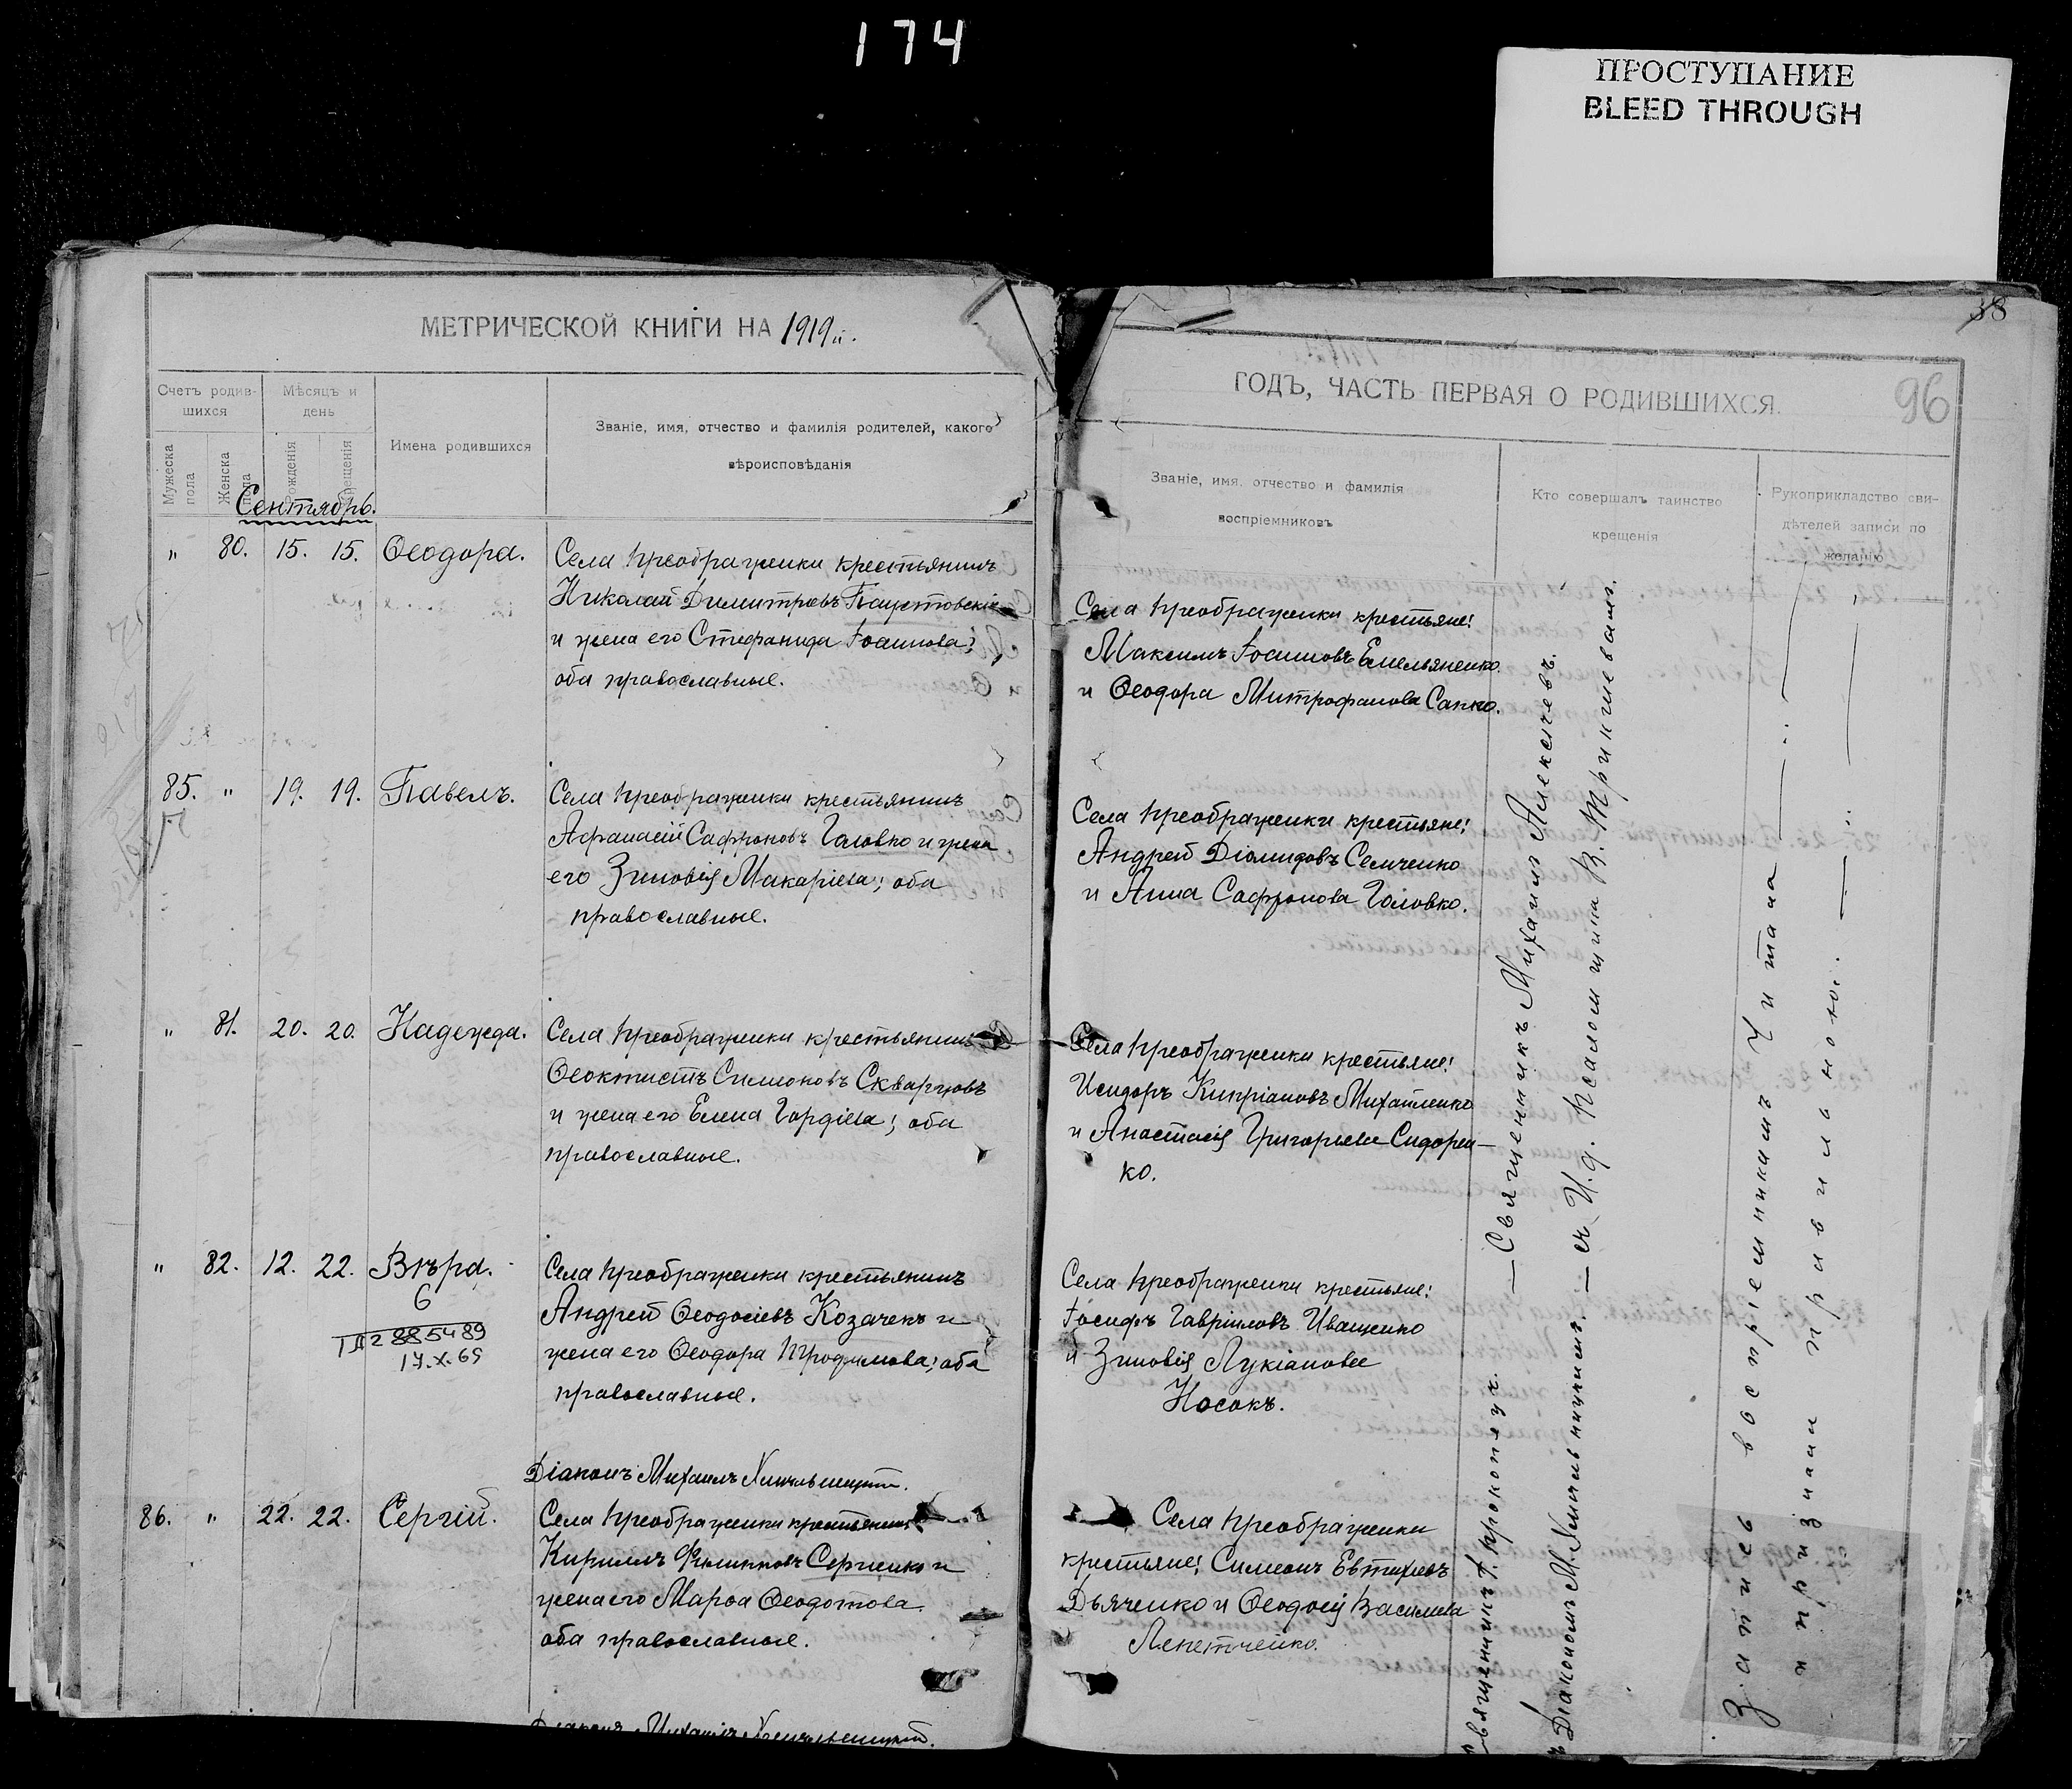 174
ПРОСТУПАНИЕ
BLEED THROUGH
38
96
МЕТРИЧЕСКОЙ КНИГИ НА 1919
ГОДЪ, ЧАСТЬ ПЕРВАЯ О РОДИВШИХСЯ.
Счетъ родив-
шихся
Мѣсяцъ и
день
Мужеска
пола
Женска
пола
рожденія
крещенія
Имена родившихся
Званіе, имя, отчество и фамилія родителей, какого
вѣроисповѣданія
Званіе, имя, отчество и фамилія
воспріемниковъ
Кто совершалъ таинство
крещенія
Рукоприкладство сви-
дѣтелей записи по
желанію
Сентябрь.
" 80. 15. 15. Ѳеодора.
Села Преображенки крестьянинъ
Николай Димитріевъ Паустовскій
и жена его Стефанида Іоаннова;
оба православные.
Села Преображенки крестьяне:
Максимъ Іоанновъ Емельяненко
и Ѳеодора Митрофанова Сапко.
85. " 19. 19. Павелъ.
Села Преображенки крестьянинъ
Афанасій Сафроновъ Головко и жена
его Зиновія Макаріева; оба
православные.
Села Преображенки крестьяне:
Андрей Діомидовъ Семченко
и Анна Сафронова Головко.
" 81. 20. 20. Надежда.
Села Преображенки крестьянинъ
Ѳеоктистъ Симоновъ Скварцовъ
и жена его Елена Гордіева; оба
православные.
Села Преображенки крестьяне:
Исидоръ Кипріановъ Михайленко
и Анастасія Григорьева Сидорен-
ко.
" 82. 12. 22. Вѣра.
6
885489
17.X.69
Села Преображенки крестьянинъ
Андрей Ѳеодосіевъ Козачекъ и
жена его Ѳеодора Трофимова; оба
православные.
Села Преображенки крестьяне:
Іосифъ Гавріиловъ Иващенко
и Зиновія Лукіанова
Носокъ.
Діаконъ Михаилъ Хмѣльницкій.
86. " 22. 22. Сергій.
Села Преображенки крестьянинъ
Кириллъ Филипповъ Сергіенко и
жена его Марѳа Ѳеодотова
оба православные.
Села Преображенки
крестьяне: Симеонъ Евтихіевъ
Дьяченко и Ѳеодосія Васильева
Лепетченко.
Діаконъ Михаилъ Хмѣльницкій.
Священникъ І. Прокопецъ. — Священникъ Михаилъ Алексѣевъ.
Діакономъ М. Хмѣльницкимъ. — съ И. д. Псаломщика В. Тринкгиевамъ.
Запись воспріемникамъ читана
и признали правильною.